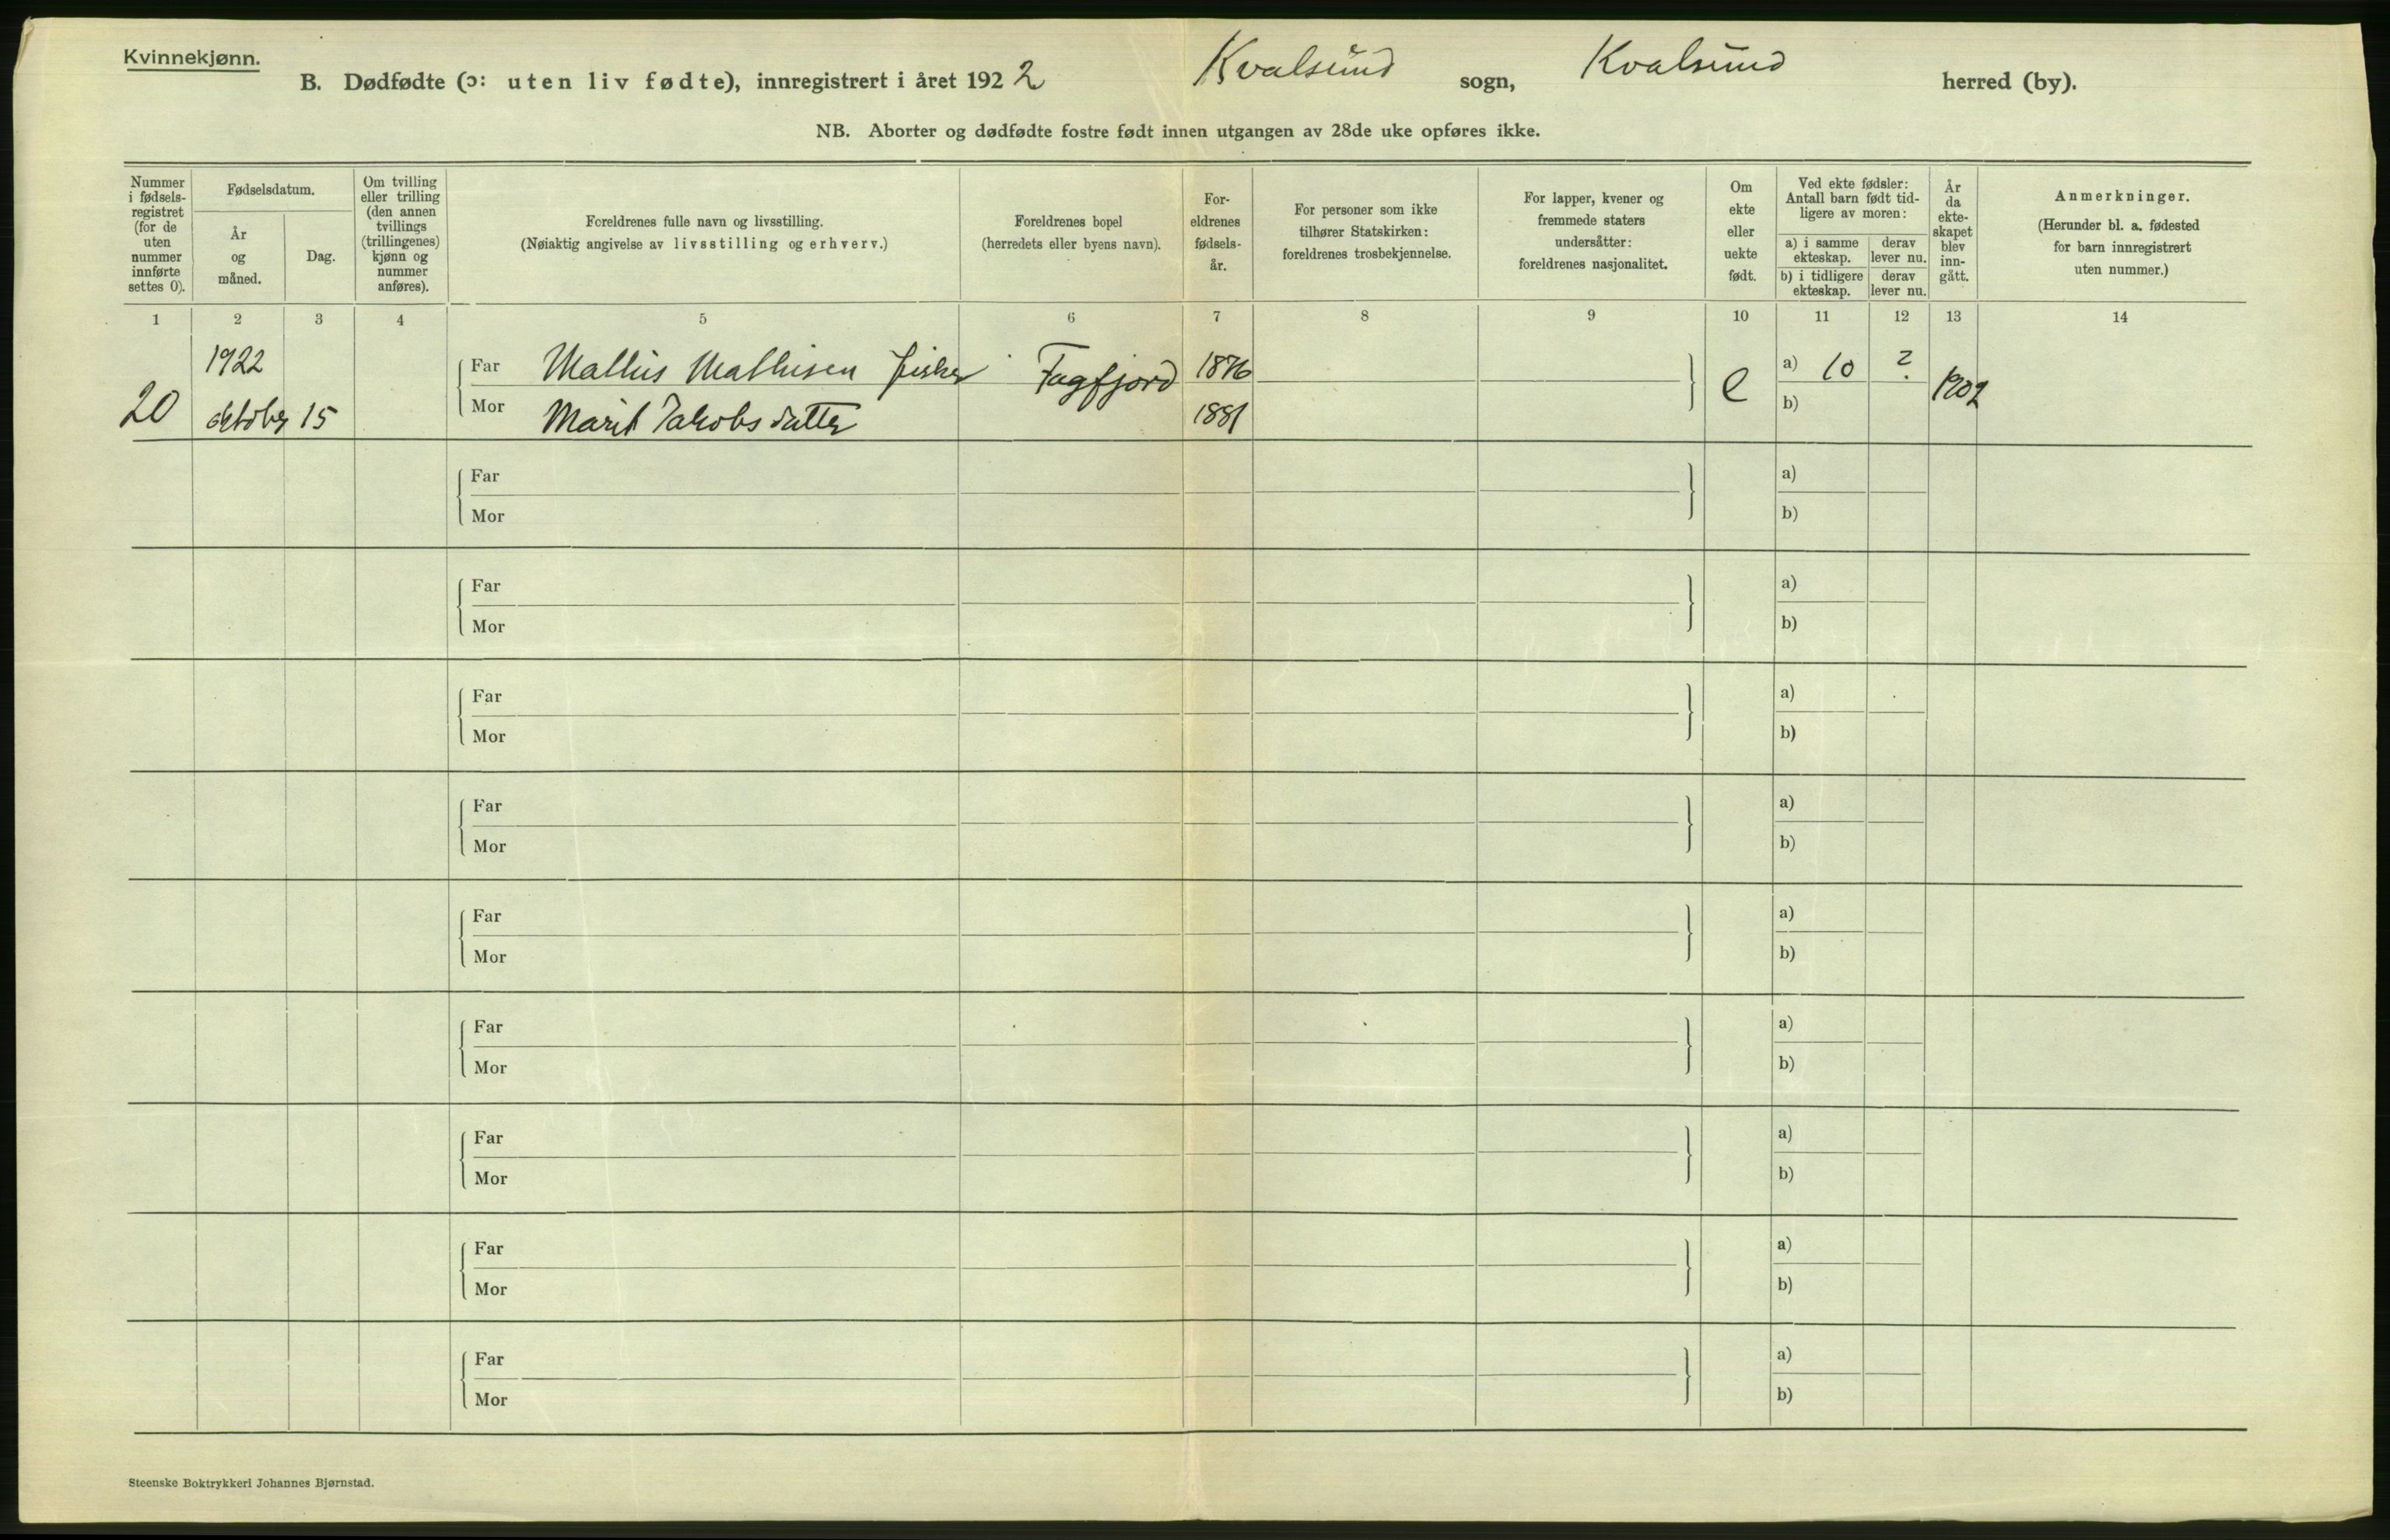 Kvinnekjønn.
B. Dødfødte (ɔ: uten liv fødte), innregistrert i året 1922 Kvalsund sogn, Kvalsund herred (by).
NB. Aborter og dødfødte fostre født innen utgangen av 28de uke opføres ikke.
Nummer
i fødsels-
registret
(for de
uten
nummer
innførte
settes 0).
Fødselsdatum.
År
og
måned.
Dag.
Om tvilling
eller trilling
(den annen
tvillings
(trillingenes)
kjønn og
nummer
anføres).
Foreldrenes fulle navn og livsstilling.
(Nøiaktig angivelse av livsstilling og erhverv.)
Foreldrenes bopel
(herredets eller byens navn).
For-
eldrenes
fødsels-
år.
For personer som ikke
tilhører Statskirken:
foreldrenes trosbekjennelse.
For lapper, kvener og
fremmede staters
undersåtter:
foreldrenes nasjonalitet.
Om
ekte
eller
uekte
født.
Ved ekte fødsler:
Antall barn født tid-
ligere av moren:
a) i samme
ekteskap.
derav
lever nu.
b) i tidligere
ekteskap.
derav
lever nu.
År
da
ekte-
skapet
blev
inn-
gått.
Anmerkninger.
(Herunder bl. a. fødested
for barn innregistrert
uten nummer.)
1 2 3 4 5 6 7 8 9 10 11 12 13 14
1922 Far Mathis Mathisen fisker Fægfjord 1876 a) 10 ?
20 oktober 15 Mor Marit Jakobsdatter 1881 e b) 1902
Far a)
Mor b)
Far a)
Mor b)
Far a)
Mor b)
Far a)
Mor b)
Far a)
Mor b)
Far a)
Mor b)
Far a)
Mor b)
Far a)
Mor b)
Far a)
Mor b)
Steenske Boktrykkeri Johannes Bjørnstad.